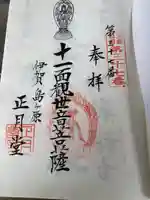 奉拝
十一面観世音菩薩
伊賀島ヶ原
正月堂